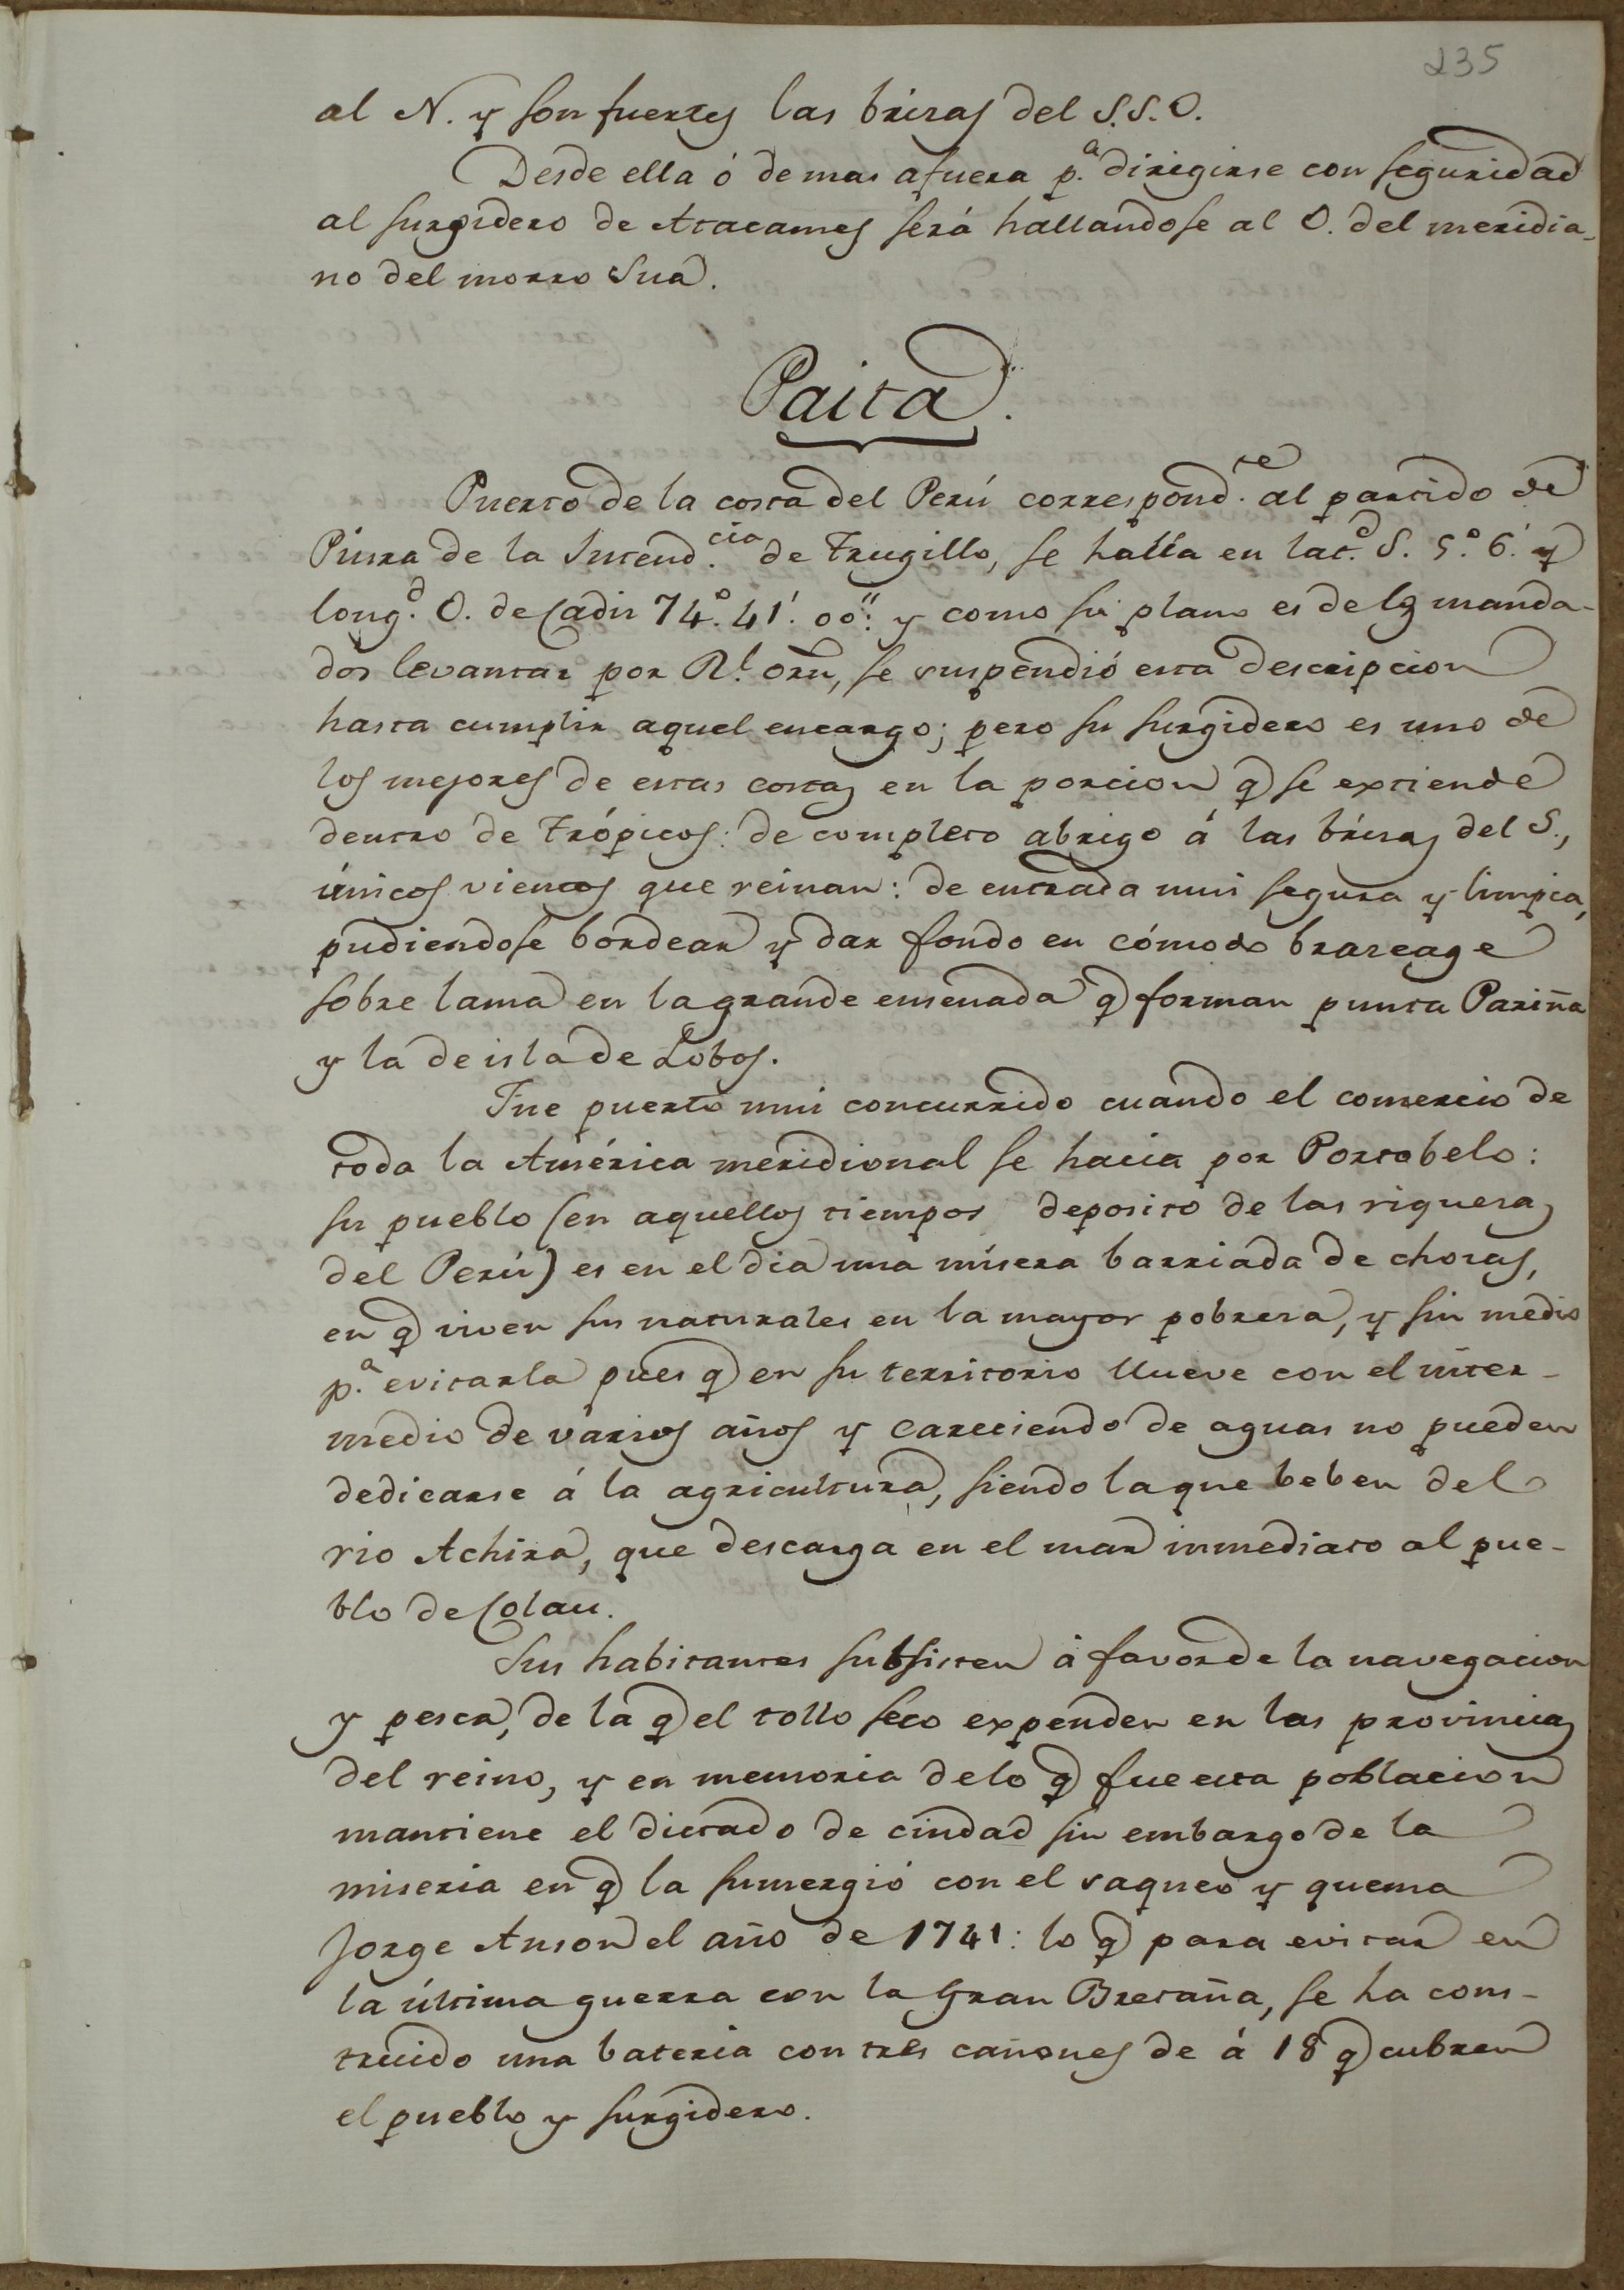 235
al N. y son fuertes las brisas del S.S.O.
Desde ella ó de mas afuera p.ª dirigirse con seguridad
al surgidero de Atacames será hallandose al O. del meridia-
no del morro Sua.
Paita.
Puerto de la costa del Perú correspond.te al partido de
Piura de la Intend.cia de Trugillo, se halla en lat.d S. 5.º 6.' y
long.d O. de Cadiz 74.º 41.' 00." y como su plano es de los manda-
dos levantar por R.l orñ, se suspendió esta descripcion
hasta cumplir aquel encargo; pero su surgidero es uno de
los mejores de estas costas en la porcion q se extiende
dentro de trópicos: de completo abrigo á las brisas del S.,
únicos vientos que reinan: de entrada mui segura y limpia,
pudiendose bordear y dar fondo en cómodo braseage
sobre lama en la grande ensenada q forman punta Pariña
y la de isla de Lobos.
Fue puerto mui concurrido cuando el comercio de
toda la América meridional se hacia por Portobelo:
su pueblo (en aquellos tiempos deposito de las riquezas
del Perú) es en el dia una mísera barriada de chozas,
en q viven sus naturales en la mayor pobreza, y sin medio
p.ª evitarla pues q en su territorio llueve con el inter-
medio de varios años y careciendo de aguas no pueden
dedicarse á la agricultura, siendo la que beben del
rio Achira, que descarga en el mar inmediato al pue-
blo de Colan.
Sus habitantes subsisten á favor de la navegacion
y pesca, de la q el tollo seco expenden en las provincias
del reino, y en memoria de lo q fue esta poblacion
mantiene el dictado de ciudad sin embargo de la
miseria en q la sumergió con el saqueo y quema
Jorge Anson el año de 1741: lo q para evitar en
la última guerra con la Gran Bretaña, se ha cons-
truido una bateria con tres cañones de á 18 q cubren
el pueblo y surgidero.